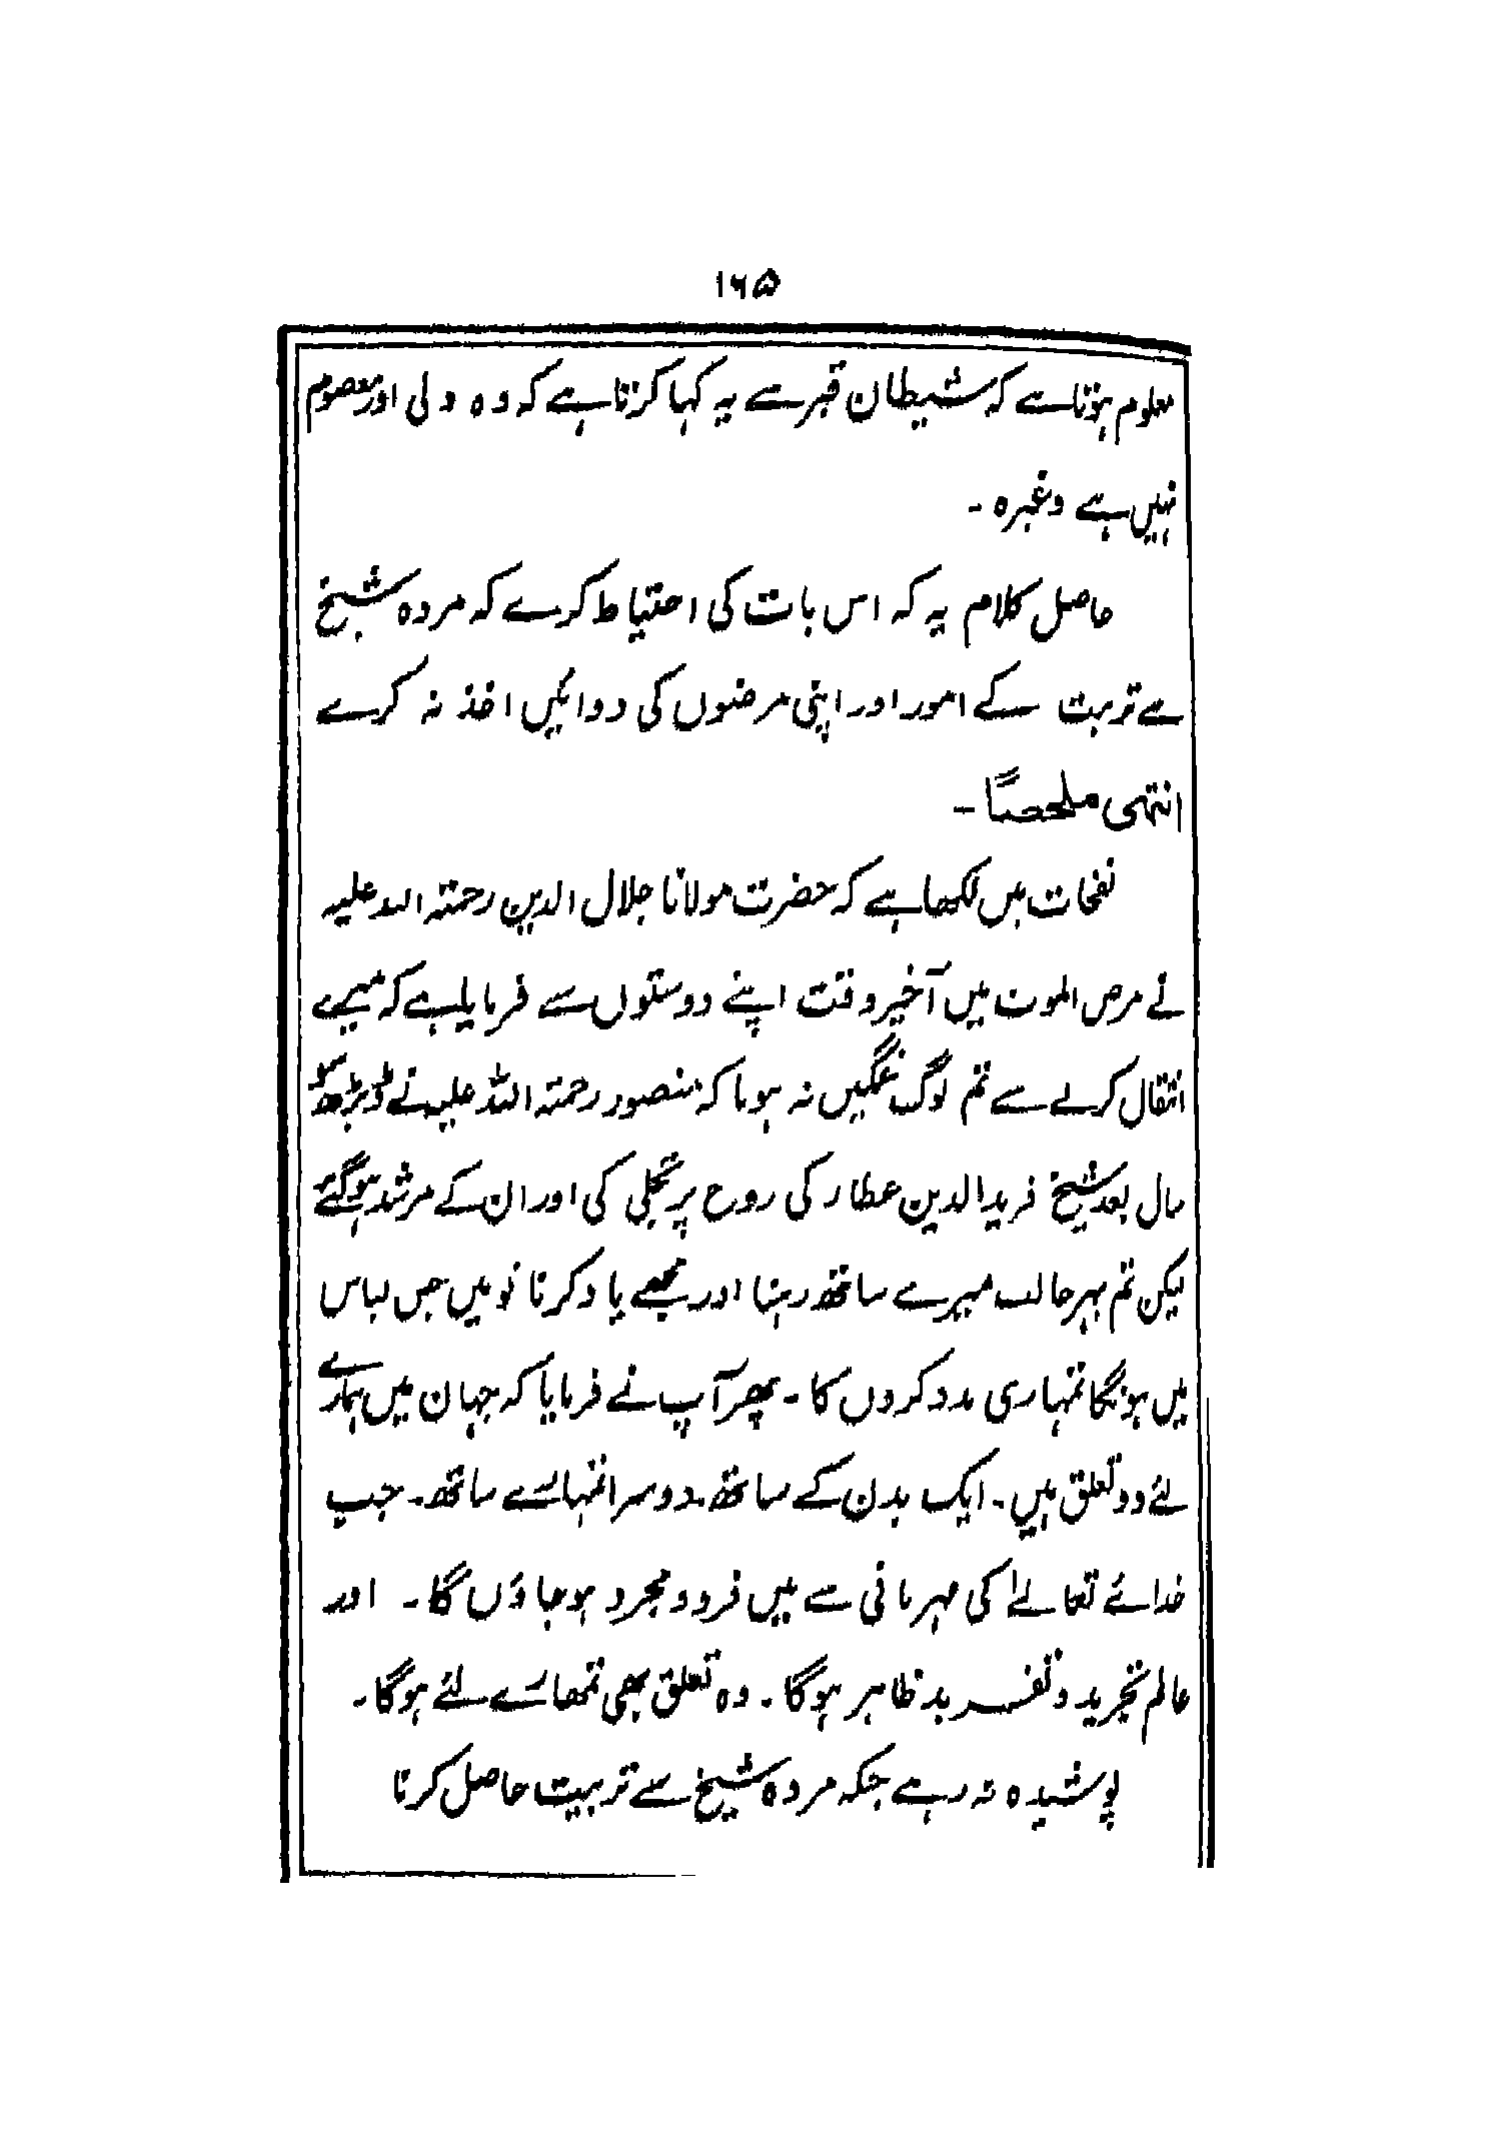 ۱۶۵
معلوم ہوتا ہے کہ شیطان قبر سے یہ کہا کرتا ہے کہ وہ ولی اور معصوم
نہیں ہے وغیرہ ۔
حاصل کلام یہ کہ اس بات کی احتیاط کرے کہ مردہ شیخ
سے تربیت کے امور اور اپنی مرضوں کی دوائیں اخذ نہ کرے
انتہی ملحصاً ۔
نفحات میں لکھا ہے کہ حضرت مولانا جلال الدین رحمتہ اللہ علیہ
نے مرض الموت میں آخیر وقت اپنے دوستوں سے فرمایا ہے کہ میرے
انتقال کرنے سے تم لوگ غمگیں نہ ہونا کہ منصور رحمتہ اللہ علیہ نے ڈیڑھ سو
سال بعد شیخ فرید الدین عطار کی روح پر تجلی کی اور ان کے مرشد ہو گئے
لیکن تم بہر حالت میرے ساتھ رہنا اور مجھے یاد کرنا تو میں جس لباس
میں ہونگا تمہاری مدد کروں گا ۔ پھر آپ نے فرمایا کہ جہان میں ہمارے
لئے دو تعلق ہیں ۔ ایک بدن کے ساتھ ۔ دوسرا تمہارے ساتھ ۔ جب
خدائے تعالےٰ کی مہربانی سے میں فرد و مجرد ہو جاؤں گا ۔ اور
عالم تجرید و تفرید ظاہر ہوگا ۔ وہ تعلق بھی تمھارے لئے ہوگا ۔
پوشیدہ نہ رہے جبکہ مردہ شیخ سے تربیت حاصل کرنا